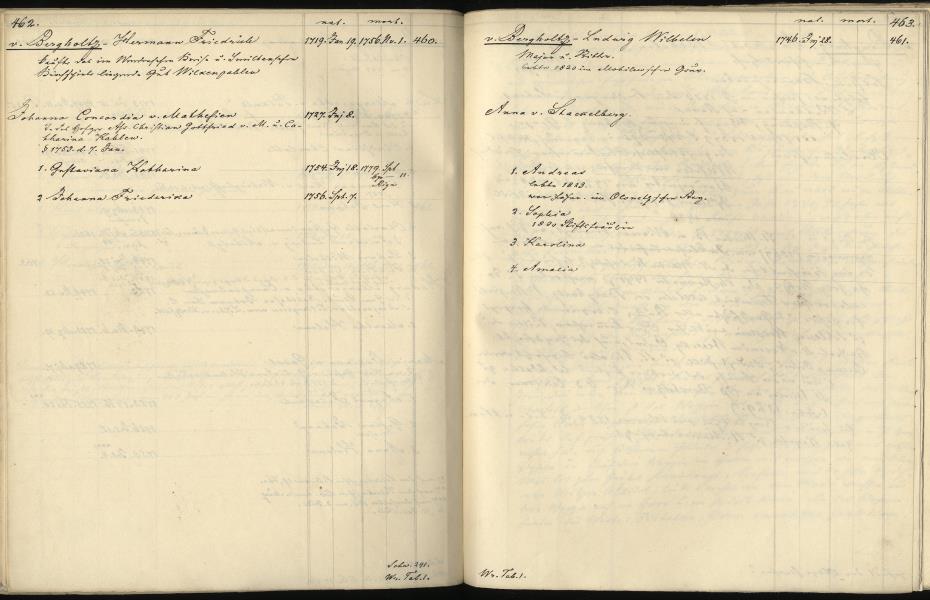 462.
nat. mort.
v. Bergholtz, - Hermann Friedrich 1719. Jan. 19. 1756. Nv. 1. 460.
kaufte das im Wendenschen Kreise u.
Kirchspiele liegende Gut Wilkenpahlen
Johanna Concordia v. Mathesien 1727. Juj 8.
Christian Gottfried v. M. u. Ca-
tharina Kahlen.
§ 1753. d. 7. Jan.
1. Gustaviana Katharina 1754. Juj 18. 1779. Spt 11.
Riga
2 Johanna Friederika 1756. Spt. 7.
Schw. 291.
Wr. Tab. 1.
nat. mort. 463.
v. Bergholtz, - Ludwig Wilhelm 1746. Juj 28. 461.
Major u. Ritter.
lebte 1820 im Mohilewschen Gouv.
Anna v. Stackelberg.
1. Andreas
lebte 1823.
war im Olonetzschen Reg.
2. Sophia
1820 Stiftsfräulein
3. Karolina
4. Amalia
Wr. Tab. 1.